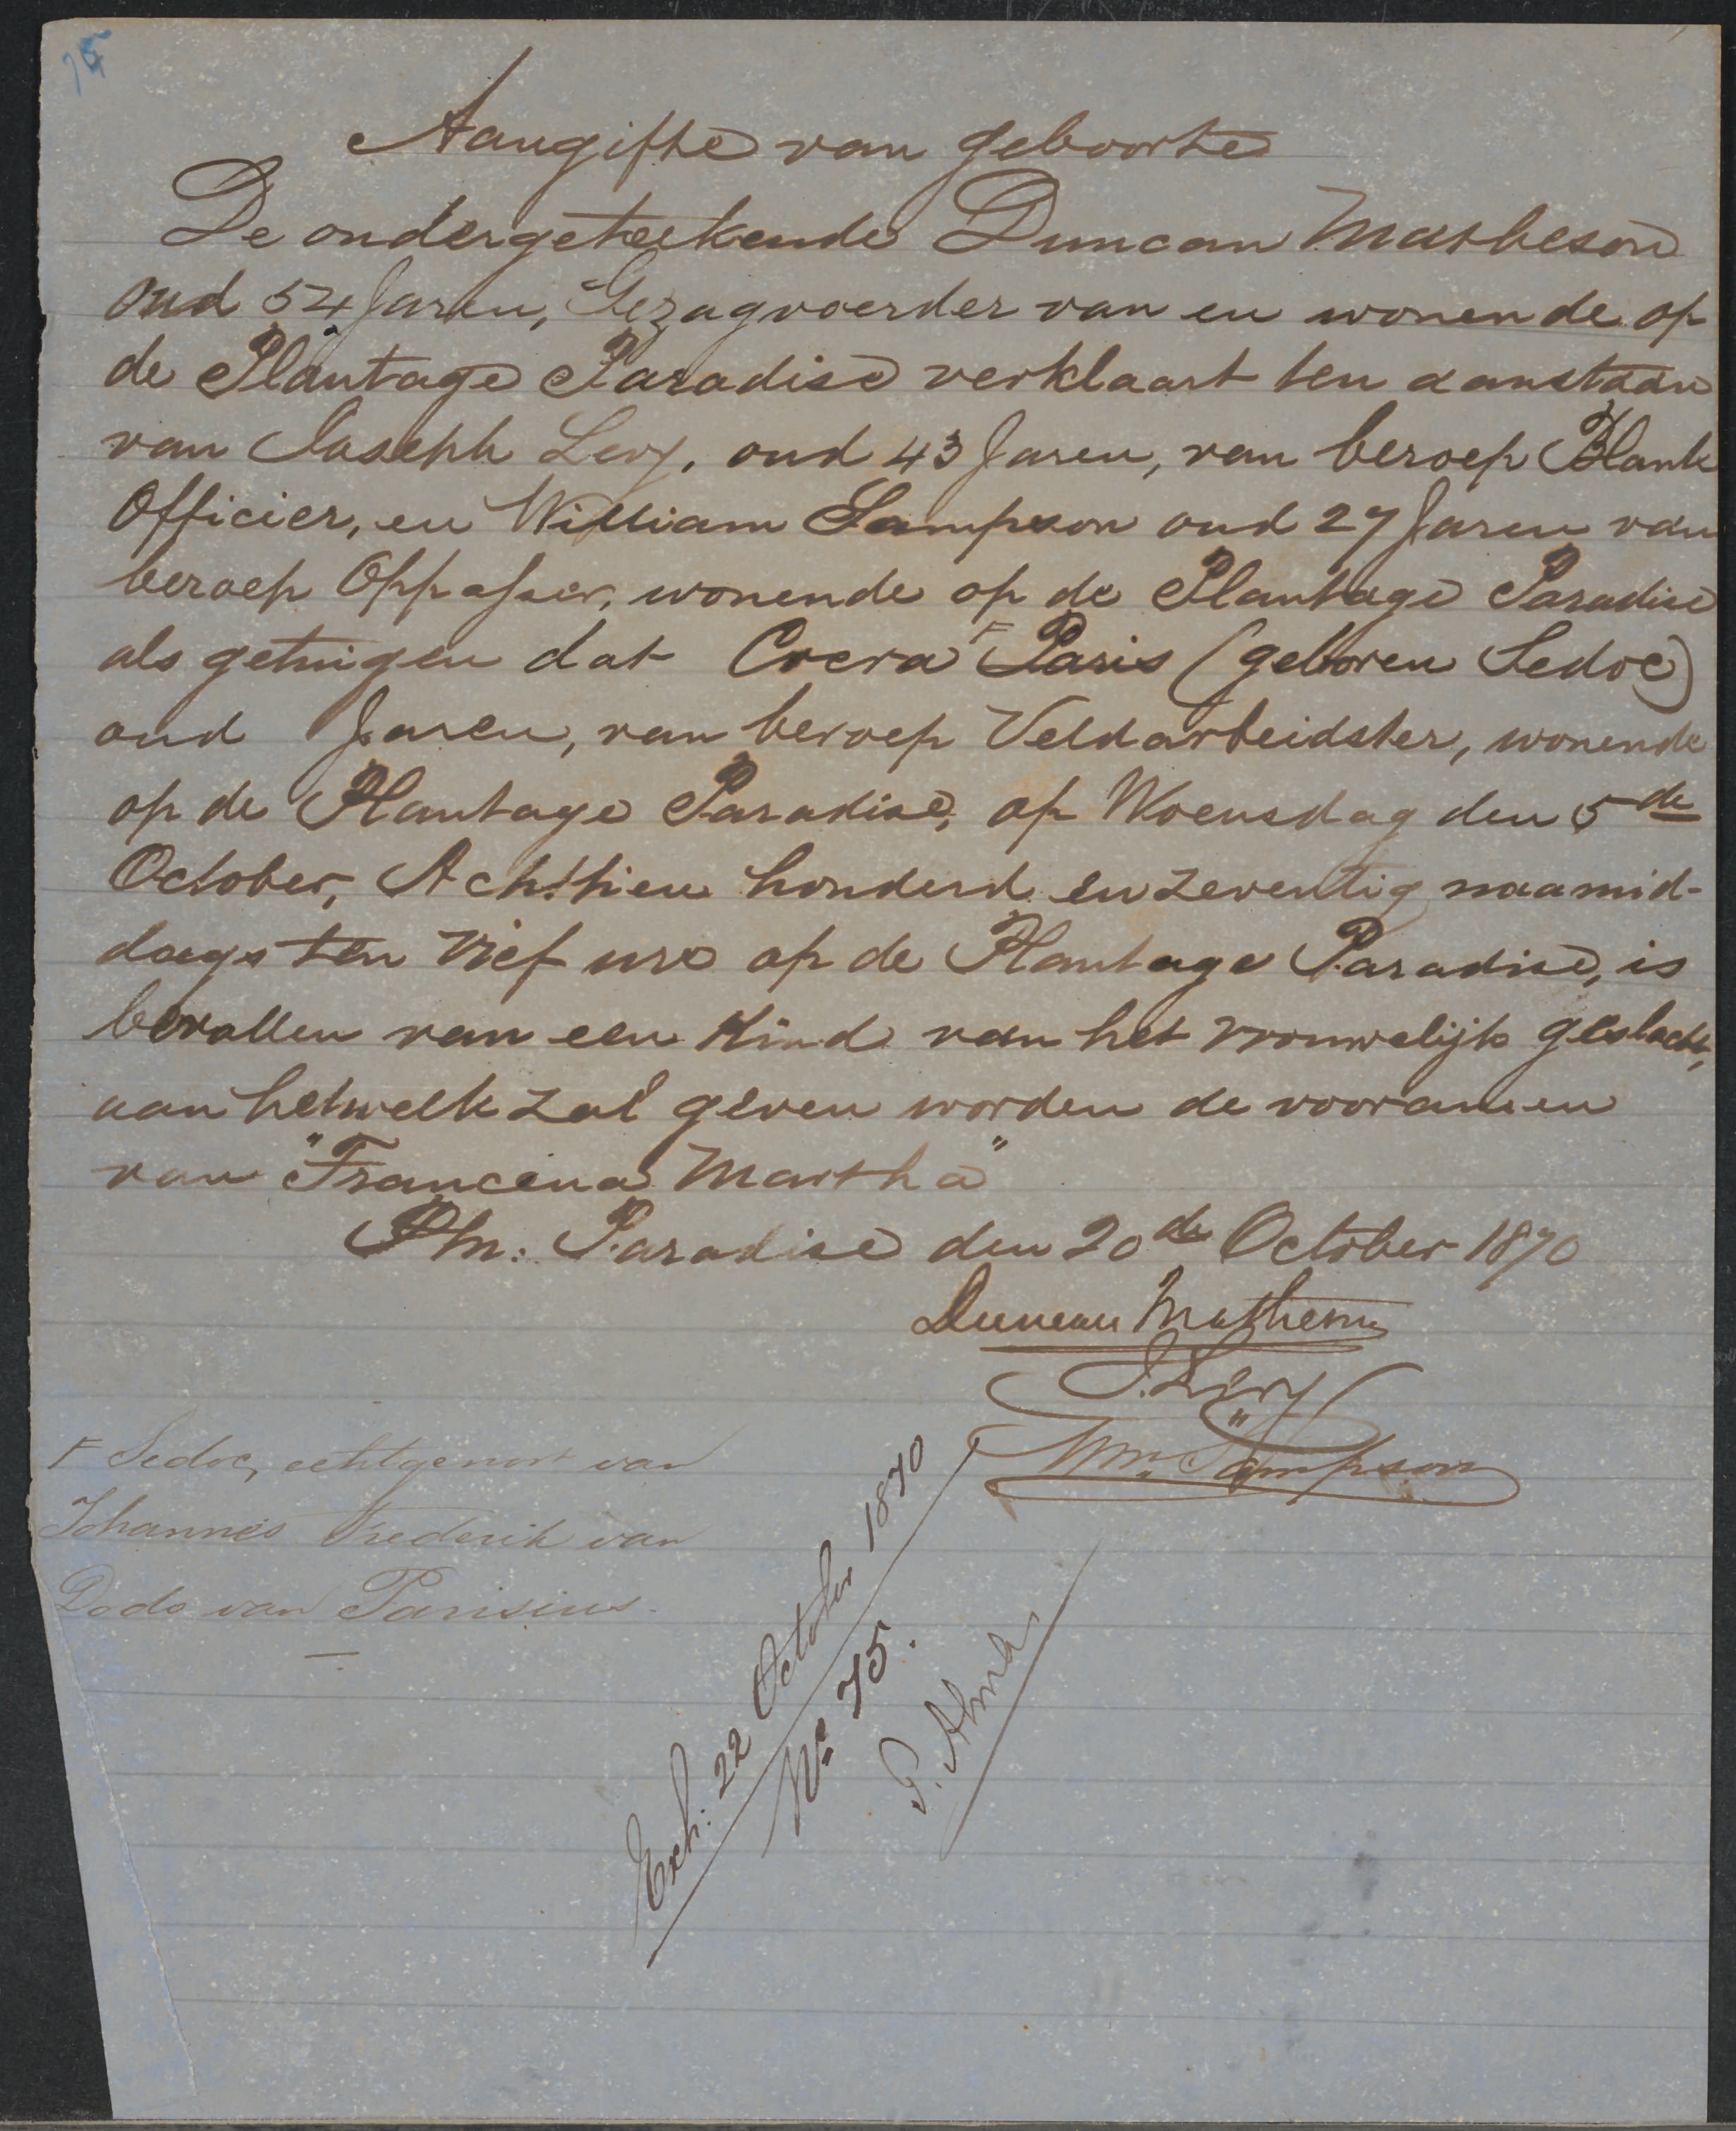 75
Aangifte van geboorte
De ondergeteekende Duncan Matheson
oud 54 Jaren, Gezagvoerder van en wonende op
de Plantage Paradise verklaart ten aanstaan
van Joseph Levy, oud 43 Jaren, van beroep Blank
Officier, en William Sampson oud 27 Jaren van
beroep Oppasser, wonende op de Plantage Paradise
als getuigen dat Coera F Paris (geboren Sedoc)
oud Jaren, van beroep Veldarbeidster, wonende
op de Plantage Paradise, op Woensdag den 5de
October, Achttien honderd en zeventig naamid-
dags ten vief ure op de Plantage Paradise, is
bevallen van een Kind van het vrouwelijk geslacht,
aan hetwelk zal geven worden de vooramen
van "Francina Martha"
Pln: Paradise den 20de October 1870
Duncan Matheson
J. Levy
Wm. Sampson
F Sedoc, echtgenoot van
Johannes Frederik van
Dodo van Parisius.
Exh: 22 October 1870
No 75.